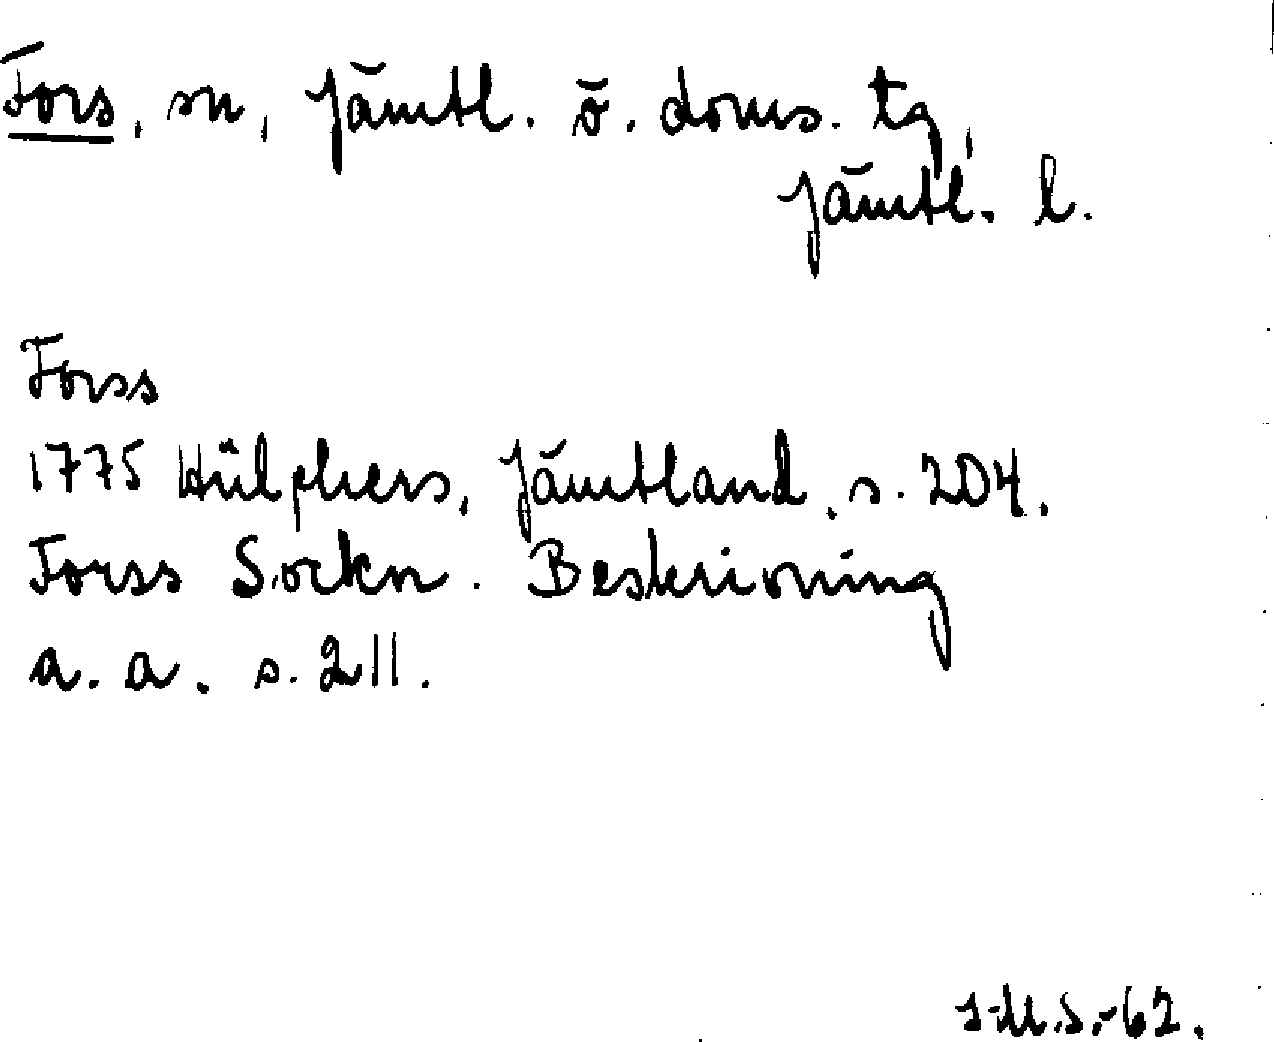 Fors, sn, Jämtl. ö. doms. tg,
Jämtl. l.
Forss
1775 Hülphers, Jämtland, s. 204.
Forss Sockn. Beskrivning
a. a. s. 211.
J-M.S.-62.